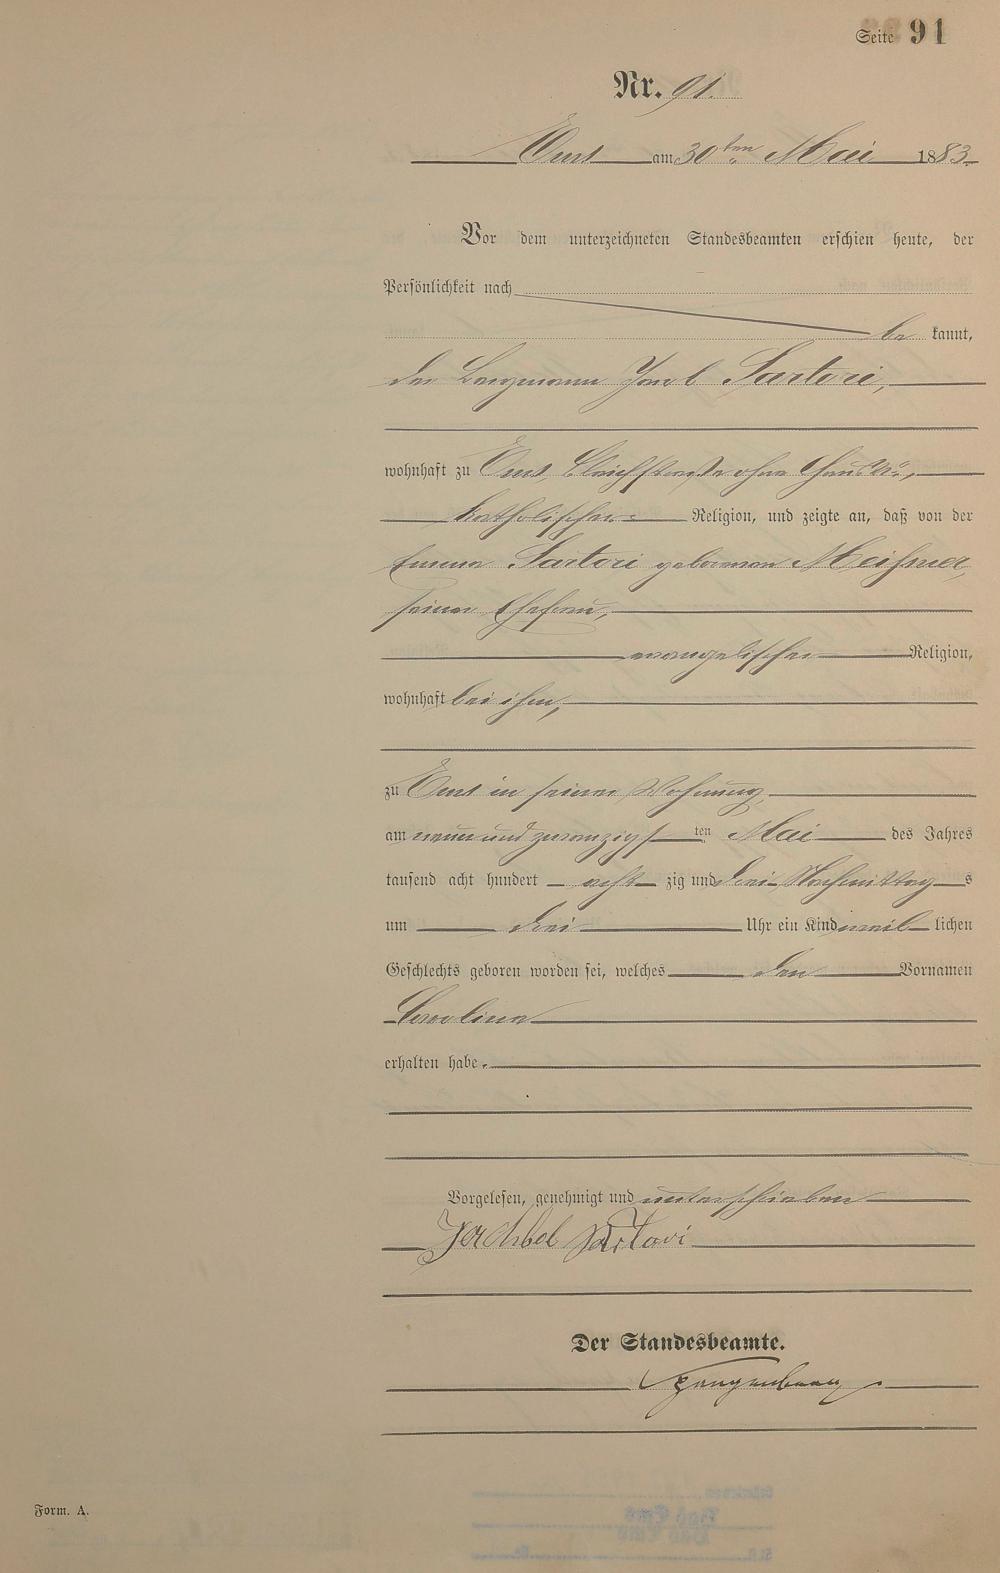 Seite 91
Nr. 91.
Ems am 30ten Mai 1883.
Vor dem unterzeichneten Standesbeamten erschien heute, der
Persönlichkeit nach
be kannt,
der Bergmann Jacob Sartori,
wohnhaft zu Ems, Bleichstraße ohne Haus Nr,
katholischer Religion, und zeigte an, daß von der
Emma Sartori geborenen Meißner,
seiner Ehefrau,
evangelischer Religion,
wohnhaft bei ihm,
zu Ems in seiner Wohnung,
am neun und zwanzigsten Mai des Jahres
tausend acht hundert acht zig und drei Nachmittags
um drei Uhr ein Kind weiblichen
Geschlechts geboren worden sei, welches den Vornamen
Carolina
erhalten habe.
Vorgelesen, genehmigt und unterschrieben
Sartori
Der Standesbeamte.
Form. A.